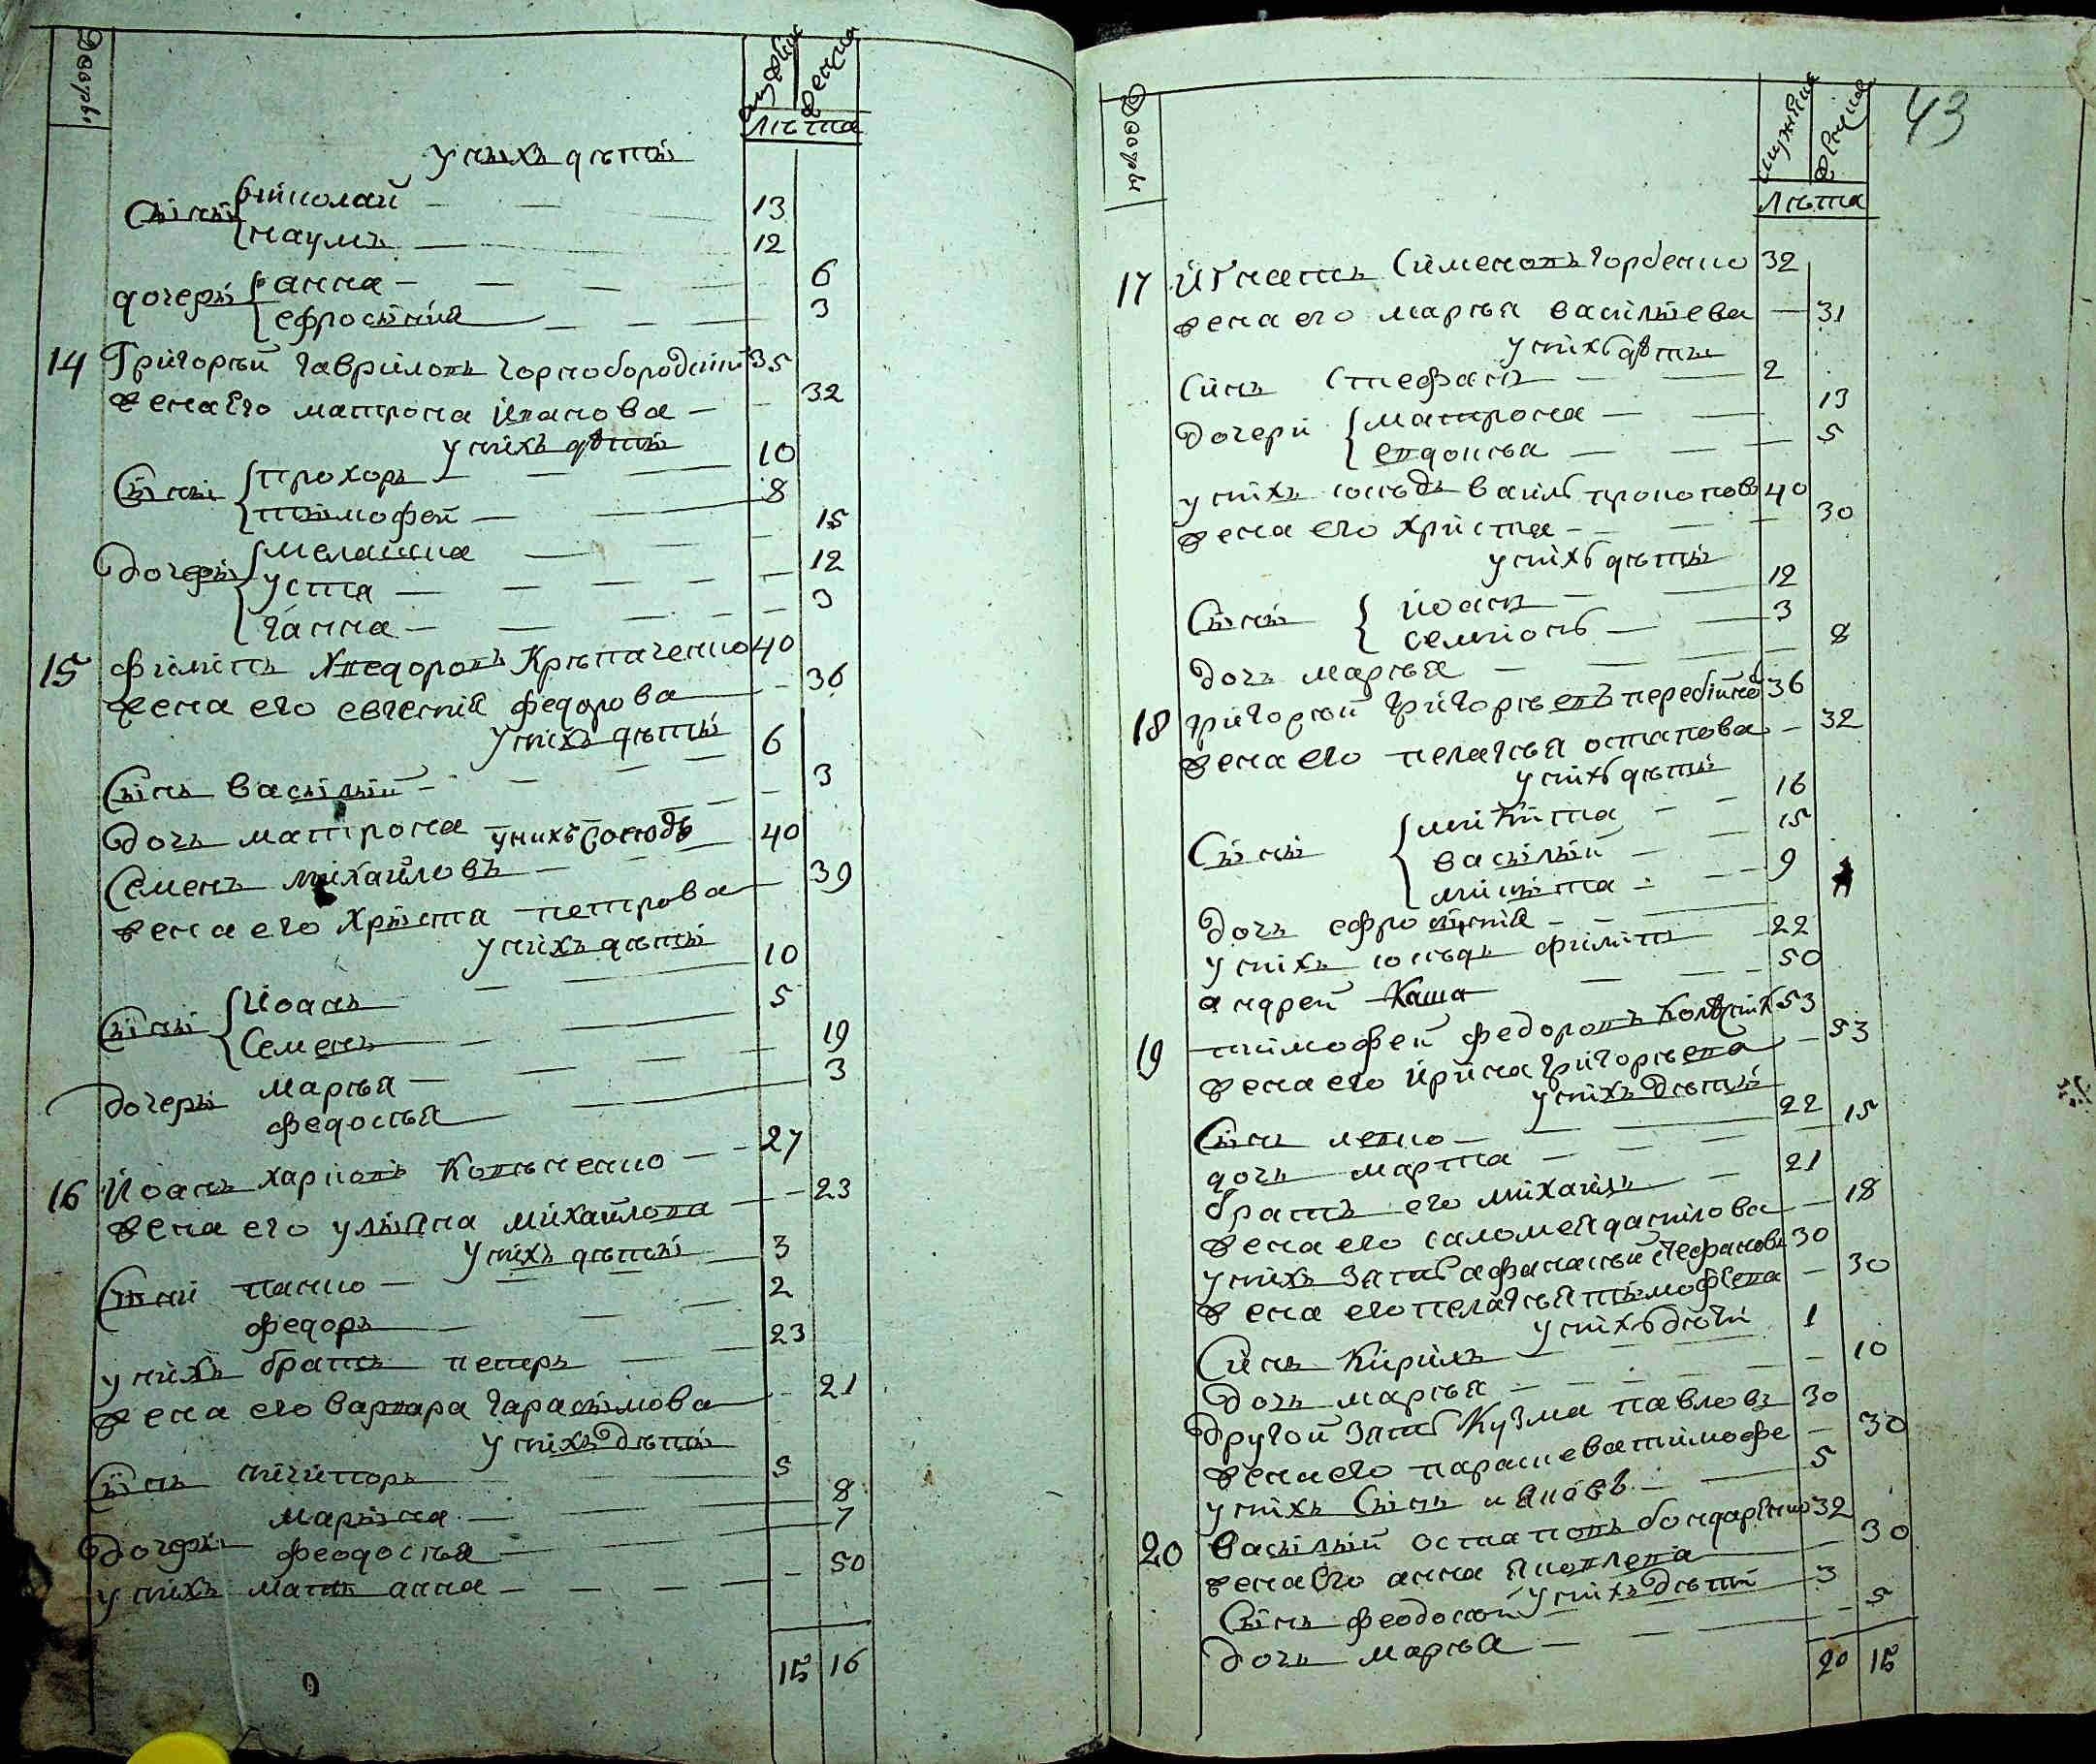 Дворы
мужеска
женска
лѣта
у нихъ дѣти
Сыны николай - - - 13
наумъ - 12
дочери анна - - - 6
ефросинія - - - 3
14 Григорый гаврило въ чорнобородкин 35
жена Его матрона иванова - - 32
у нихъ дѣти
Сыны прохоръ - - - 10
тимофей - - 8
Дочеры мелашка - - - 15
устя - - - - - 12
ганна - - - - - 3
15 филипъ федоровъ Крѣпаченко 40
жена его евгенія федорова - 36
у нихъ дѣти
Сынъ василий - - - - 6
Дочъ матрона - - - - 3
у нихъ сосюдъ
Семенъ михайловъ - - - 40
жена его христя петрова - 39
у нихъ дѣти
Сыны Иоанъ - - 10
Семенъ - - - 5
Дочеры марья - - - - - 19
федосья - - 3
16 Иоанъ карповъ Ковѣненко - - 27
жена его уляна михайлова - - 23
у нихъ дѣти
Сыни панко - - - - 3
федоръ - - - 2
у нихъ братъ петеръ - - 23
жена его варвара гарасимова - 21
у нихъ дѣти
Сынъ нигиторъ - - 5
марына - - 8
Дочеры феодосья - - 7
у нихъ мать анна - - - - - 50
15 16
43
Дворы
мужеска
женска
лѣта
17 Игнатъ Сименовъ горбенко 32
жена его марья василыева - 31
у нихъ дѣты
Синъ Стефанъ - - 2
Дочери матрона - - 13
евдокья - - - 5
у нихъ сосѣдъ василь прокопов 40
жена его христя - - - - 30
у нихъ дѣты
Сыны иоанъ - 12
семионъ - - 3
дочъ марья - - - - 8
18 григорый григорьевъ перебійно 36
жена его пелагѣя остапова - 32
у нихъ дѣти
Сыны микита - - 16
василый - - 15
микита - - - 9
Дочъ ефросинія - - -
у нихъ сосѣдъ филипъ - 22
андрей Каша - - - 50
19 тимофей федоровъ Колесник 53
жена его ирина григорьева - 53
у нихъ дѣти
Сынъ левко - - 22
дочъ марта - - - 15
братъ его михайлъ - 21
жена его саломея данилова - 18
у нихъ зять афанасый стефановъ 30
жена его пелагѣя тимофѣева - 30
у нихъ дѣти
Синъ Кирилъ - - - 1
Дочъ марья - - - - - 10
другой зять Кузма павловъ 30
жена его параскева тимофе - 30
у нихъ Сынъ яковъ - - 5
20 василый остаповъ бондарѣнко 32
жена его анна яковлева - 30
у нихъ дѣти
Сынъ феодосий - 3
дочъ марья - - - - 5
20 15